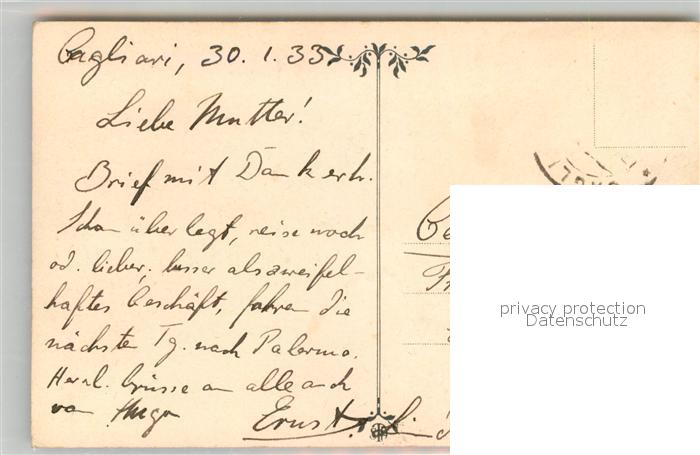 Cagliari, 30. 1. 33
Liebe Mutter!
Brief mit Dank erh.
Schon überlegt, reise noch
od. lieber, besser als zweifel-
haftes Geschäft, fahren die
nächsten Tg. nach Palermo.
Herzl. Grüsse an alle auch
von Hugo Ernst.
privacy protection
Datenschutz